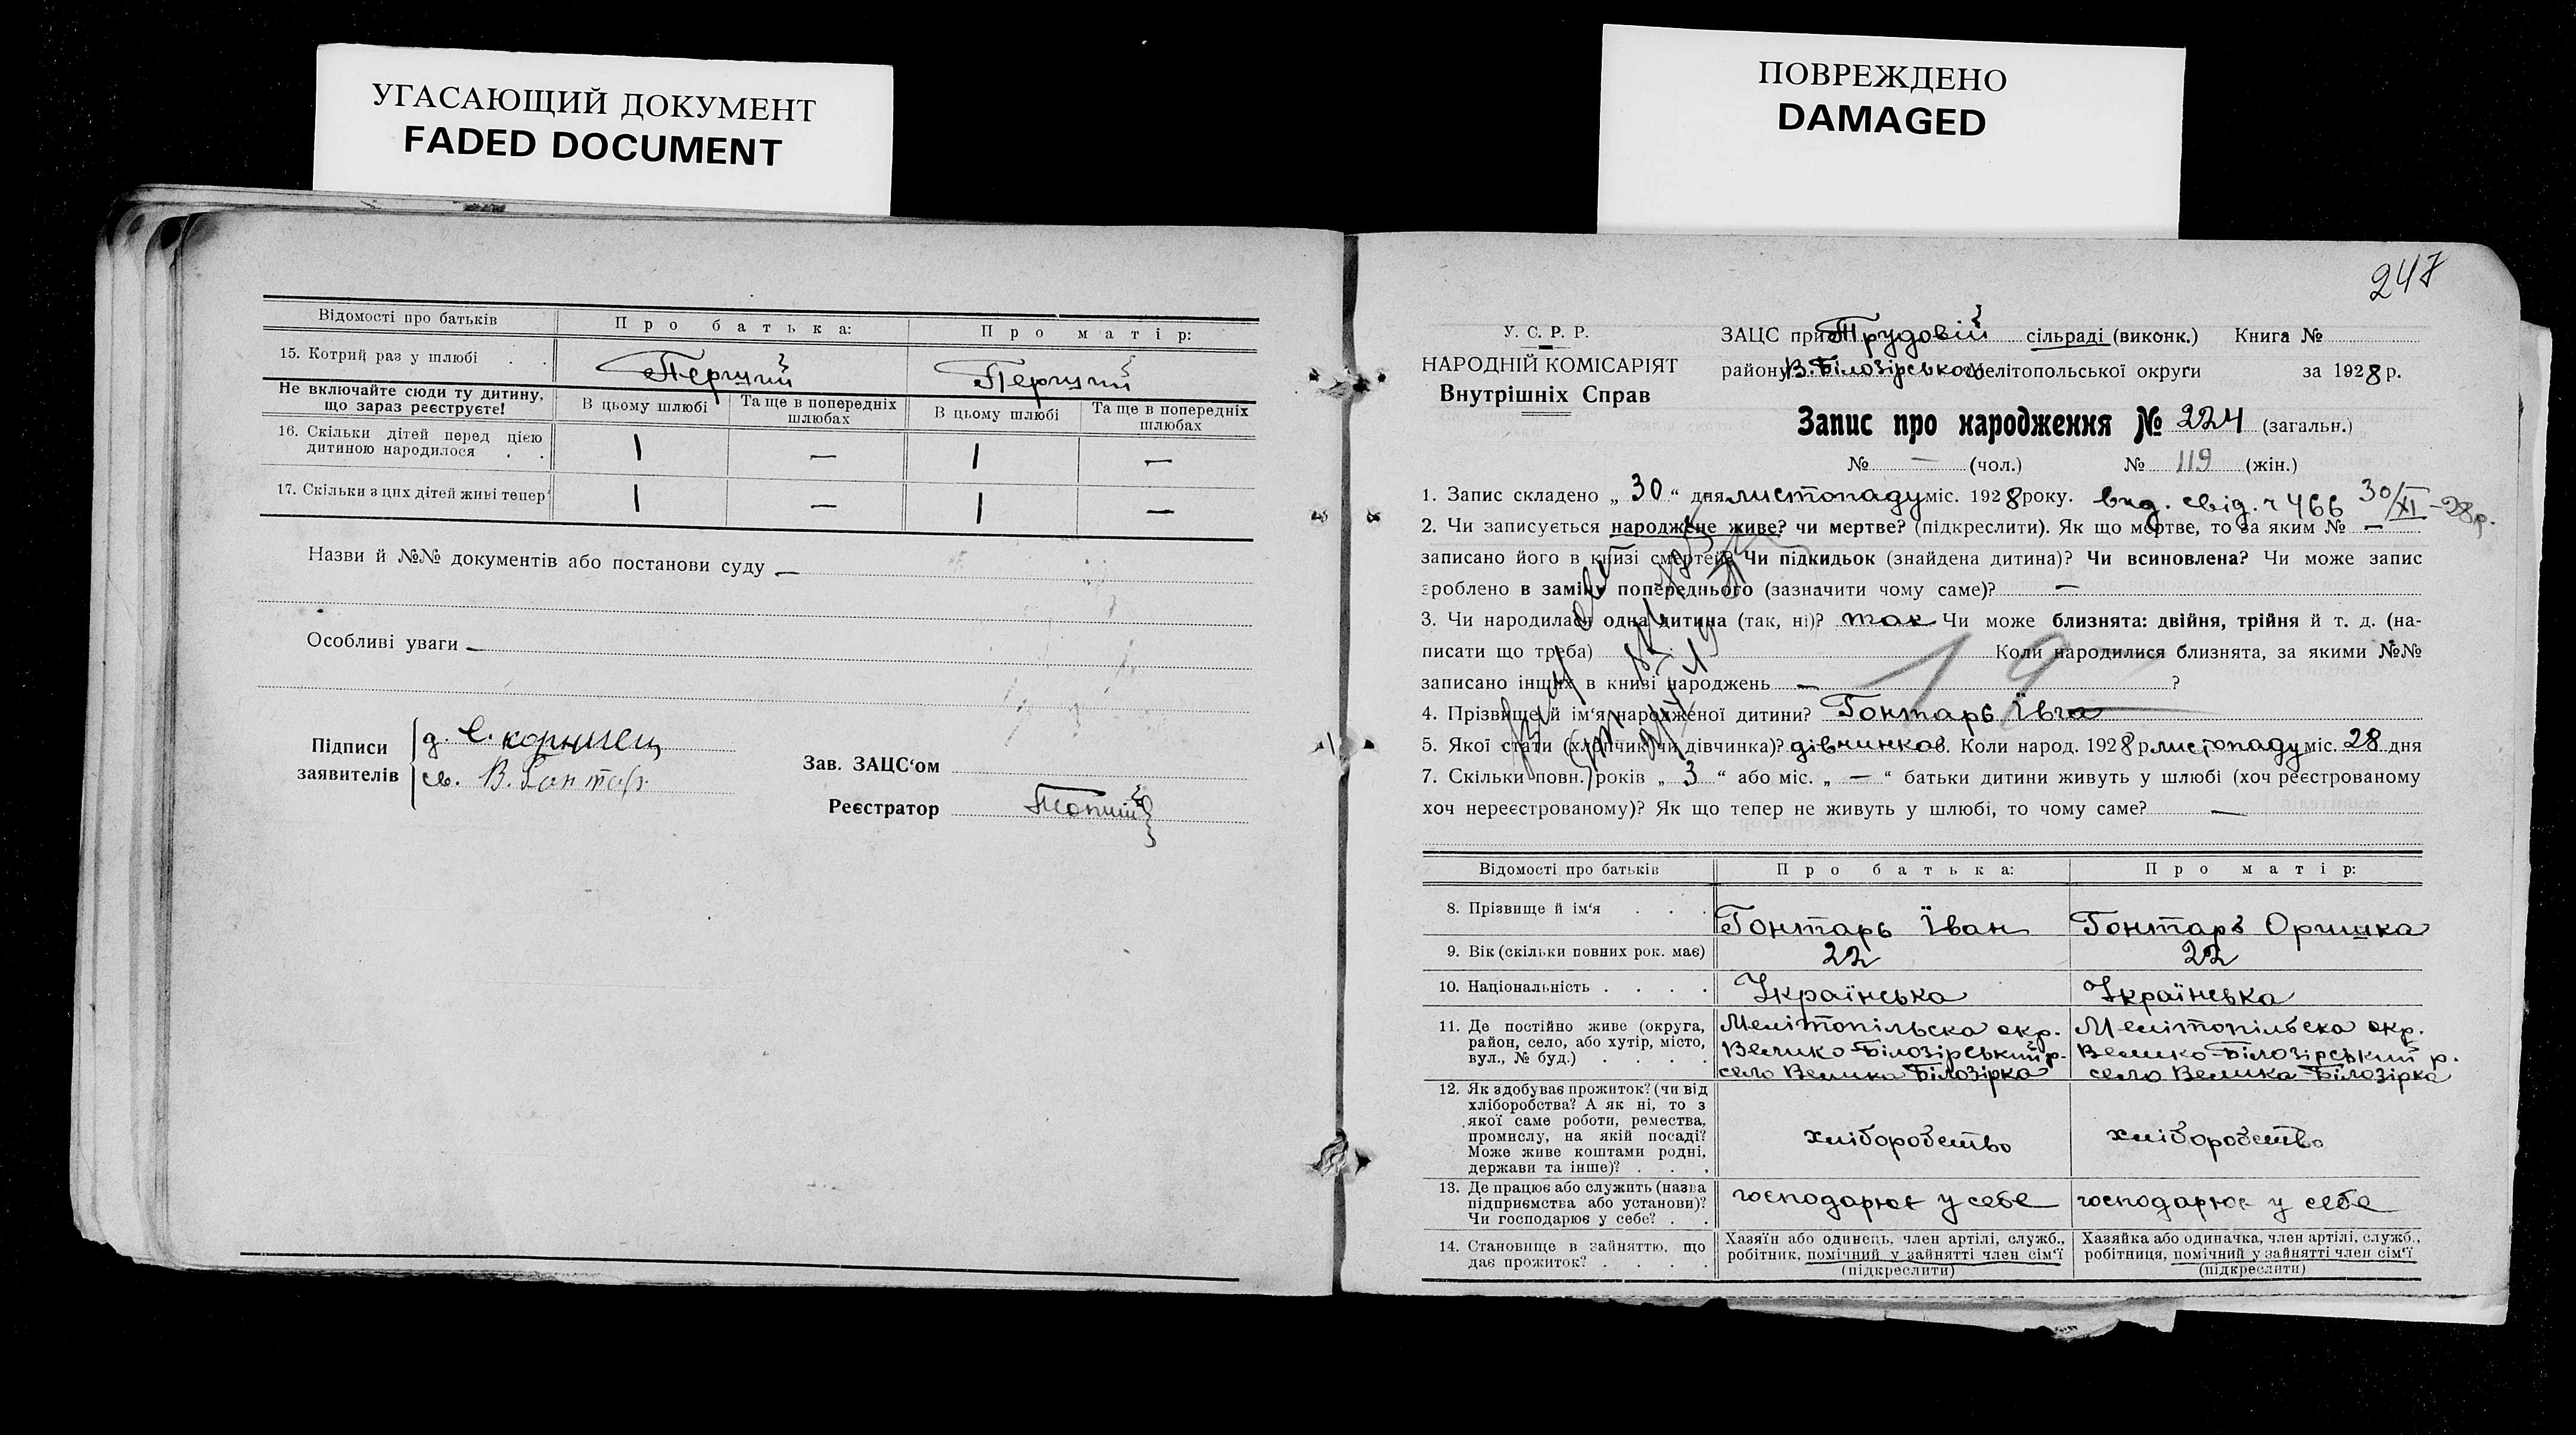 УГАСАЮЩИЙ ДОКУМЕНТ
FADED DOCUMENT
ПОВРЕЖДЕНО
DAMAGED
Відомості про батьків Про батька: Про матір:
15. Котрий раз у шлюбі . . Перший Перший
Не включайте сюди ту дитину, що зараз реєструєте! В цьому шлюбі Та ще в попередніх шлюбах В цьому шлюбі Та ще в попередніх шлюбах
16. Скільки дітей перед цією
дитиною народилося . . 1 — 1 —
17. Скільки з цих дітей живі тепер 1 — 1 —
Назви й №№ документів або постанови суду —
Особливі уваги —
Підписи
заявителів
д. Є. корниец
св. В. Гонтар
Зав. ЗАЦС‘ом
Реєстратор
247
У. С. Р. Р.
НАРОДНІЙ КОМІСАРІЯТ
Внутрішніх Справ
ЗАЦС при Трудовій сільраді (виконк.) Книга №
району В.-Білозірсько Мелітопольської округи за 1928 р.
Запис про народження № 224 (загальн.)
№ — (чол.) № 119 (жін.)
1. Запис складено „ 30 “ дня листопаду міс. 1928 року. вид. свід. ч 466 30/XI-28р.
2. Чи записується народжене живе? чи мертве? (підкреслити). Як що мертве, то за яким № —
записано його в книзі смертей? Чи підкидьок (знайдена дитина)? Чи всиновлена? Чи може запис
зроблено в заміну попереднього (зазначити чому саме)? —
3. Чи народилася одна дитина (так, ні)? так Чи може близнята: двійня, трійня й т. д. (на-
писати що треба) Коли народилися близнята, за якими №№
записано інших в книзі народжень — ?
19
4. Прізвище й ім‘я народженої дитини? Гонтарь Ївга
5. Якої стати (хлопчик чи дівчинка)? дівчинка 6. Коли народ. 1928 р. листопаду міс. 28 дня
7. Скільки повн. років „ 3 “ або міс. „ — “ батьки дитини живуть у шлюбі (хоч реєстрованому
хоч нереєстрованому)? Як що тепер не живуть у шлюбі, то чому саме? —
Відомості про батьків Про батька: Про матір:
8. Прізвище й ім‘я . . . Гонтарь Їван Гонтарь Оришка
9. Вік (скільки повних рок. має) 22 22
10. Національність . . . . Українська Українська
11. Де постійно живе (округа,
район, село, або хутір, місто,
вул., № буд.) . . . .
Мелітопільска окр.
Велико-Білозірський р.
село Велика Білозірка
Мелітопільска окр.
Велико-Білозірський р.
село Велика-Білозірка
12. Як здобуває прожиток? (чи від
хліборобства? А як ні, то з
якої саме роботи, ремества,
промислу, на якій посаді?
Може живе коштами родні,
держави та інше)? . . .
хліборобство хліборобство
13. Де працює або служить (назва
підприємства або установи)?
Чи господарює у себе? . .
господарює у себе господарює у себе
14. Становище в зайняттю, що
дає прожиток? . . . .
Хазяїн або одинець, член артілі, служб.,
робітник, помічний у зайнятті член сім‘ї
(підкреслити)
Хазяйка або одиначка, член артілі, служб.,
робітниця, помічний у зайнятті член сім‘ї
(підкреслити)